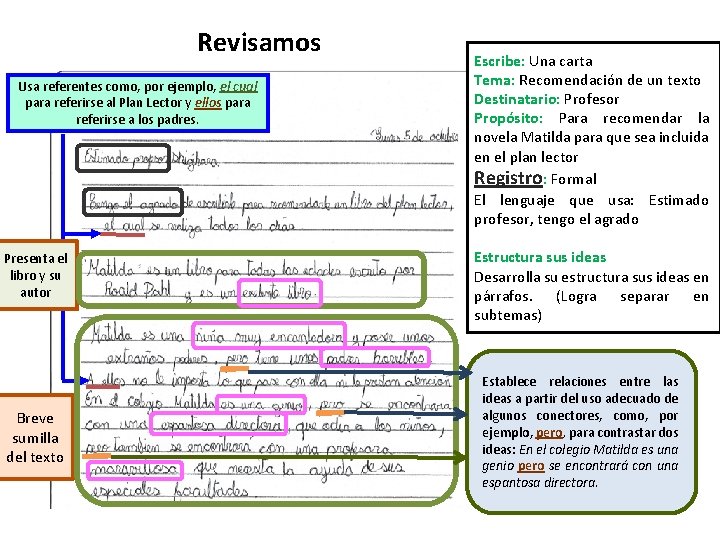 Revisamos
Usa referentes como, por ejemplo, el cual
para referirse al Plan Lector y ellos para
referirse a los padres.
Lunes 5 de octubre
Estimado profesor Shigihara
Tengo el agrado de escribirle para recomendarle un libro del plan lector,
el cual se realiza todos los días
Presenta el
libro y su
autor
Matilda es un libro para todas las edades escrito por
Roald Dahl y es un exelente libro
Matilda es una niña muy encantadora y posee unos
extraños padres, pero tiene unos padres horribles
A ellos no le importa lo que pase con ella ni le prestan atención
Breve
sumilla
del texto
En el colegio Matilda es una genio, pero se encontrará
con una espantosa directora
pero también se encontrará con una profesora
maravillosa que necesita la ayuda de sus
especiales facultades.
Escribe: Una carta
Tema: Recomendación de un texto
Destinatario: Profesor
Propósito: Para recomendar la
novela Matilda para que sea incluida
en el plan lector
Registro: Formal
El lenguaje que usa: Estimado
profesor, tengo el agrado
Estructura sus ideas
Desarrolla su estructura sus ideas en
párrafos. (Logra separar en
subtemas)
Establece relaciones entre las
ideas a partir del uso adecuado de
algunos conectores, como, por
ejemplo, pero, para contrastar dos
ideas: En el colegio Matilda es una
genio pero se encontrará con una
espantosa directora.